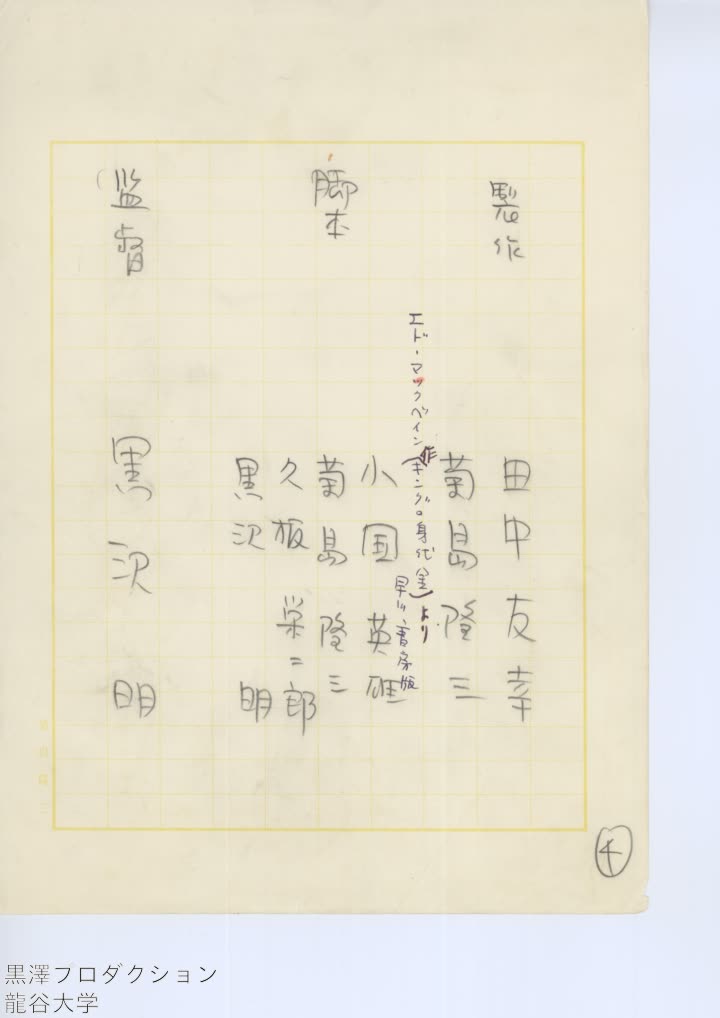 製作
田中友幸
菊島隆三
エド・マックベイン作(キングの身代金)より
早川書房版
脚本
小国英雄
菊島隆三
久板栄二郎
黒沢明
監督
黒沢明
4
黒澤プロダクション
龍谷大学